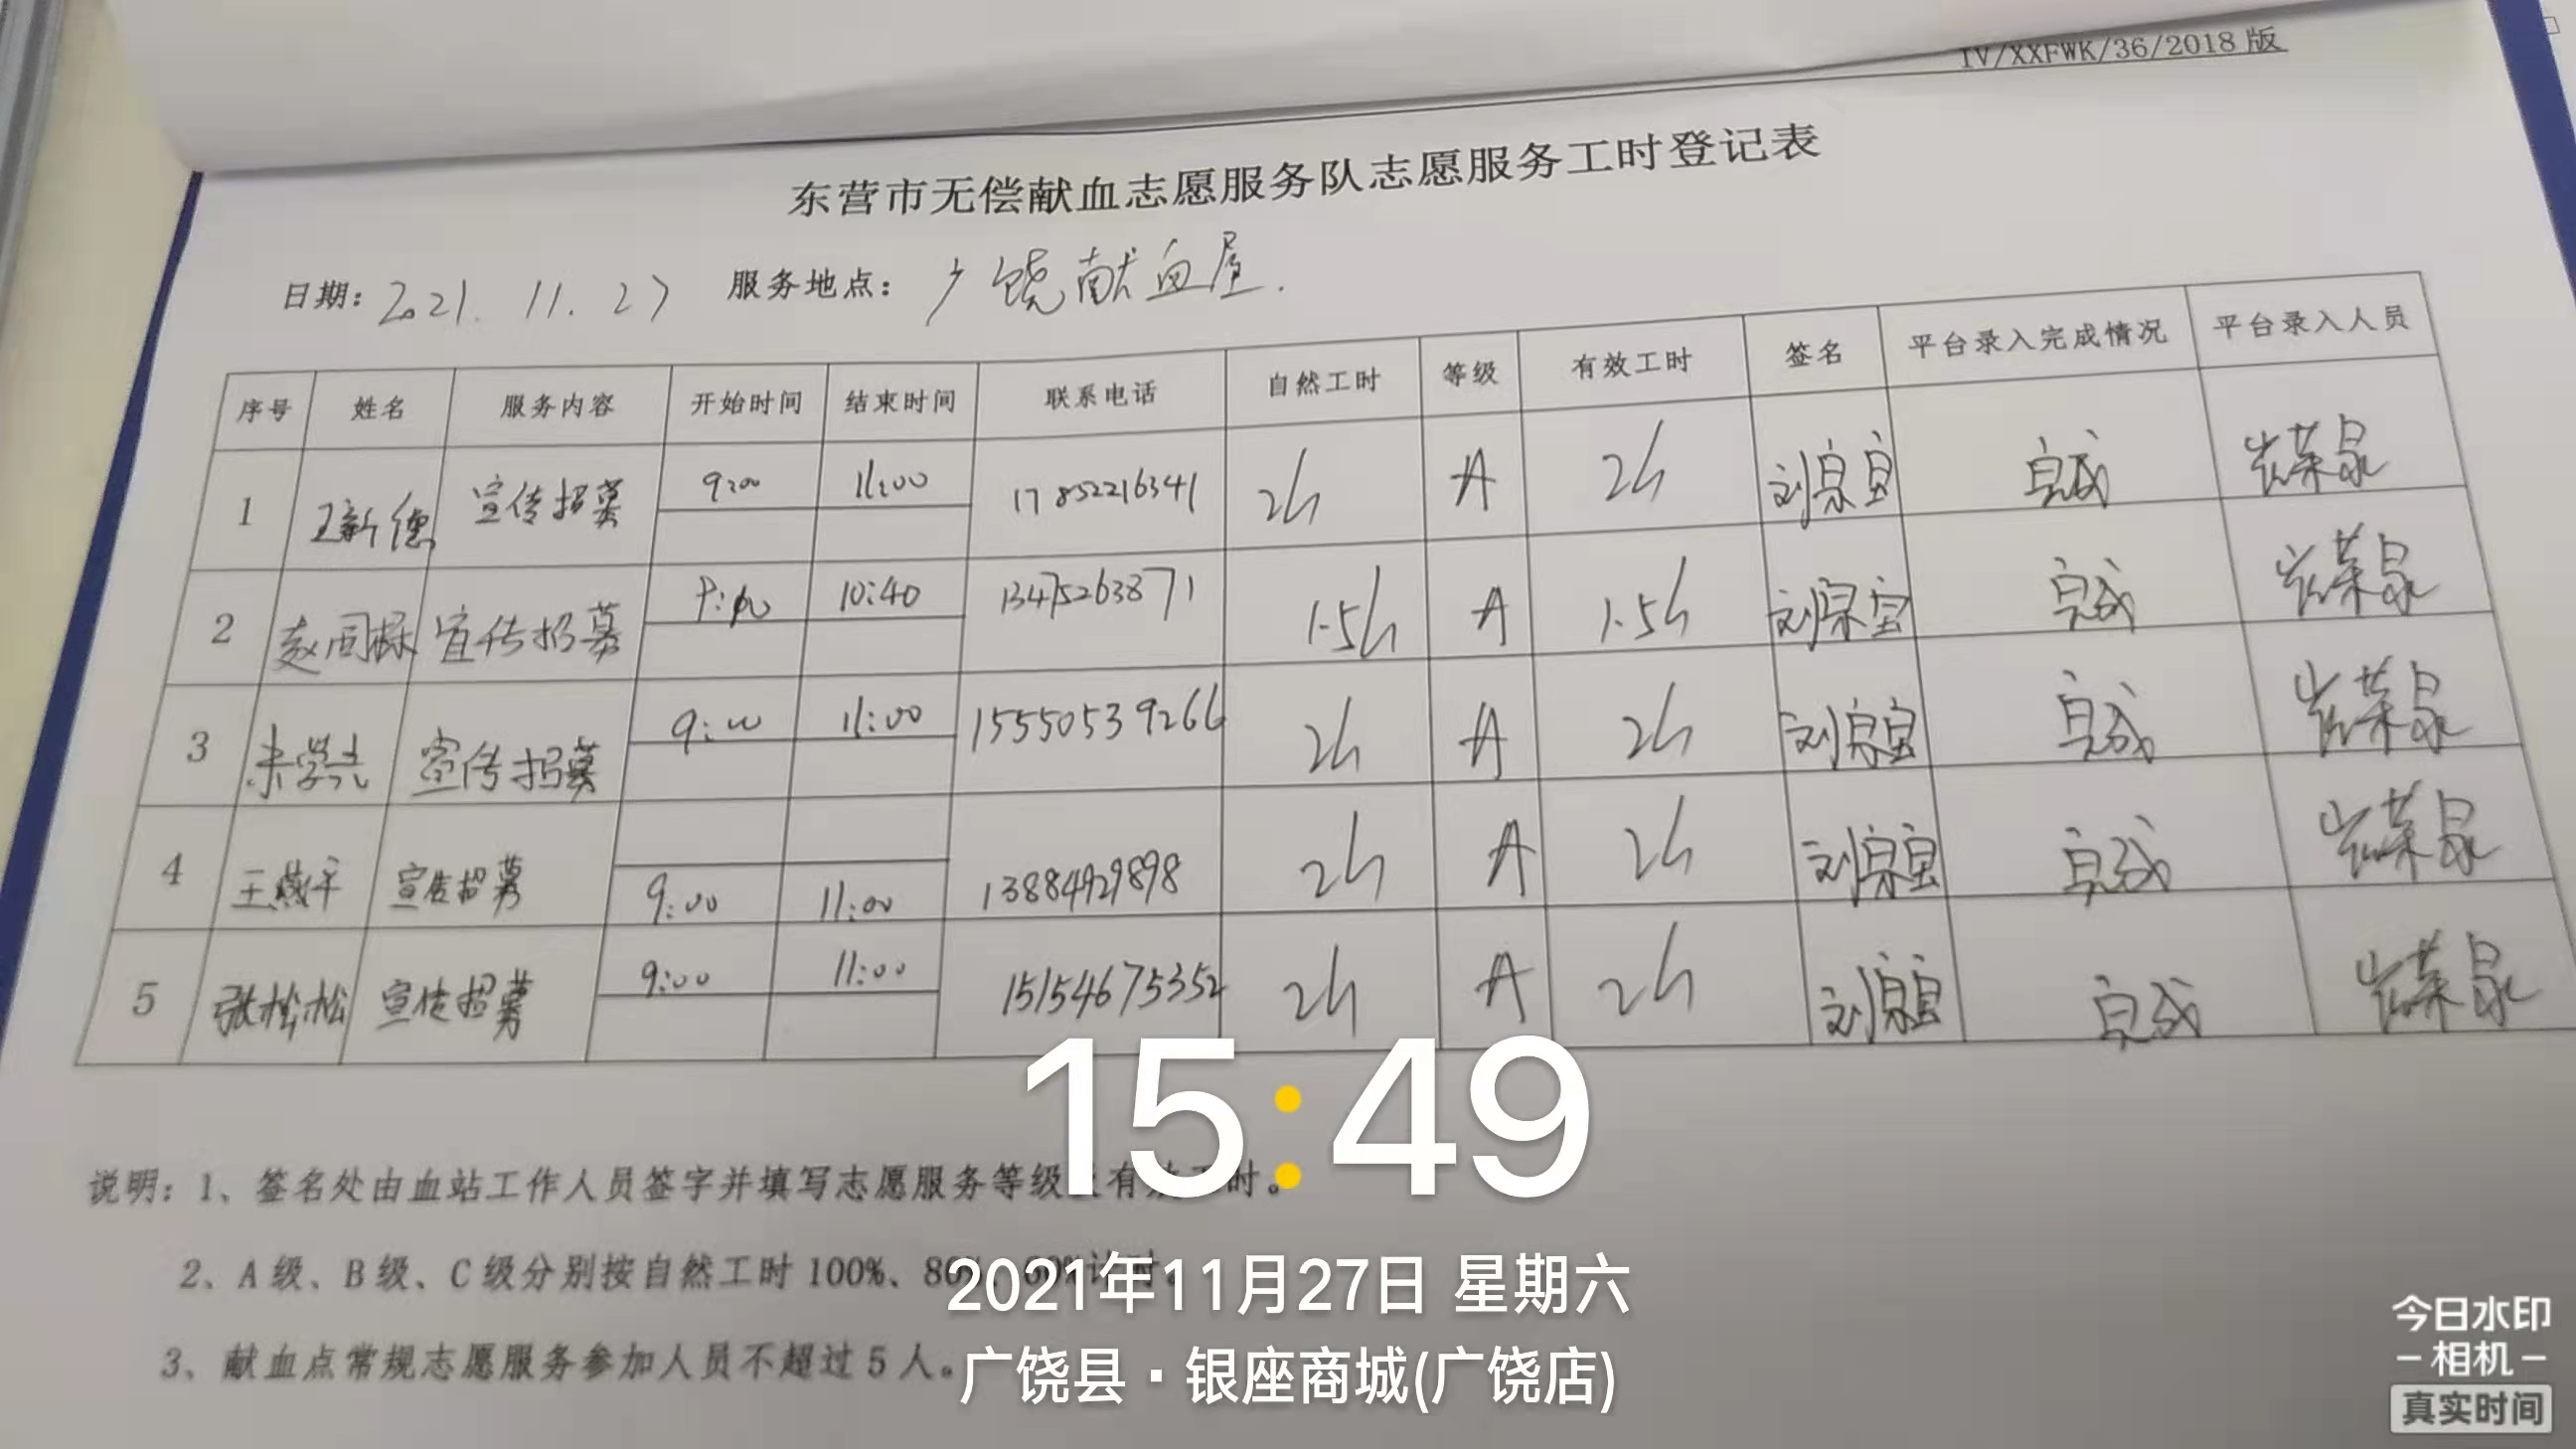 IV/XXFWK/36/2018版
东营市无偿献血志愿服务队志愿服务工时登记表
日期: 2021. 11. 27 服务地点: 广饶献血屋.
序号 姓名 服务内容 开始时间 结束时间 联系电话 自然工时 等级 有效工时 签名 平台录入完成情况 平台录入人员
1 王新德 宣传招募 9:00 11:00 17852216341 2h A 2h 完成
2 宣传招募 10:40 13475263871 1.5h A 1.5h 完成
3 宣传招募 9:00 11:00 15550539266 2h A 2h 完成
4 王燕平 宣传招募 9:00 11:00 13884929898 2h A 2h 完成
5 张松松 宣传招募 9:00 11:00 15154675352 2h A 2h 完成
15:49
说明: 1、签名处由血站工作人员签字并填写志愿服务等级 有 时。
2、A级、B级、C级分别按自然工时100%、
2021年11月27日 星期六
3、献血点常规志愿服务参加人员不超过5人。
广饶县·银座商城(广饶店)
今日水印
-相机-
真实时间